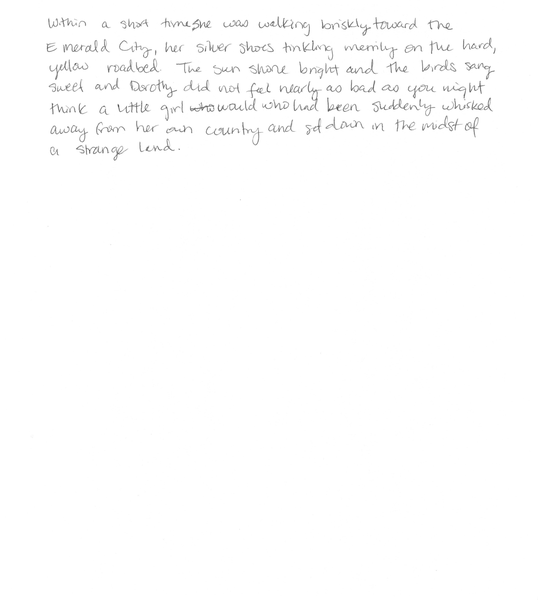 Within a short time she was walking briskly toward the
Emerald City, her silver shoes tinkling merrily on the hard,
yellow roadbed. The sun shone bright and the birds sang
sweet and Dorothy did not feel nearly as bad as you might
think a little girl who would who had been suddenly whisked
away from her own country and set down in the midst of
a strange land.